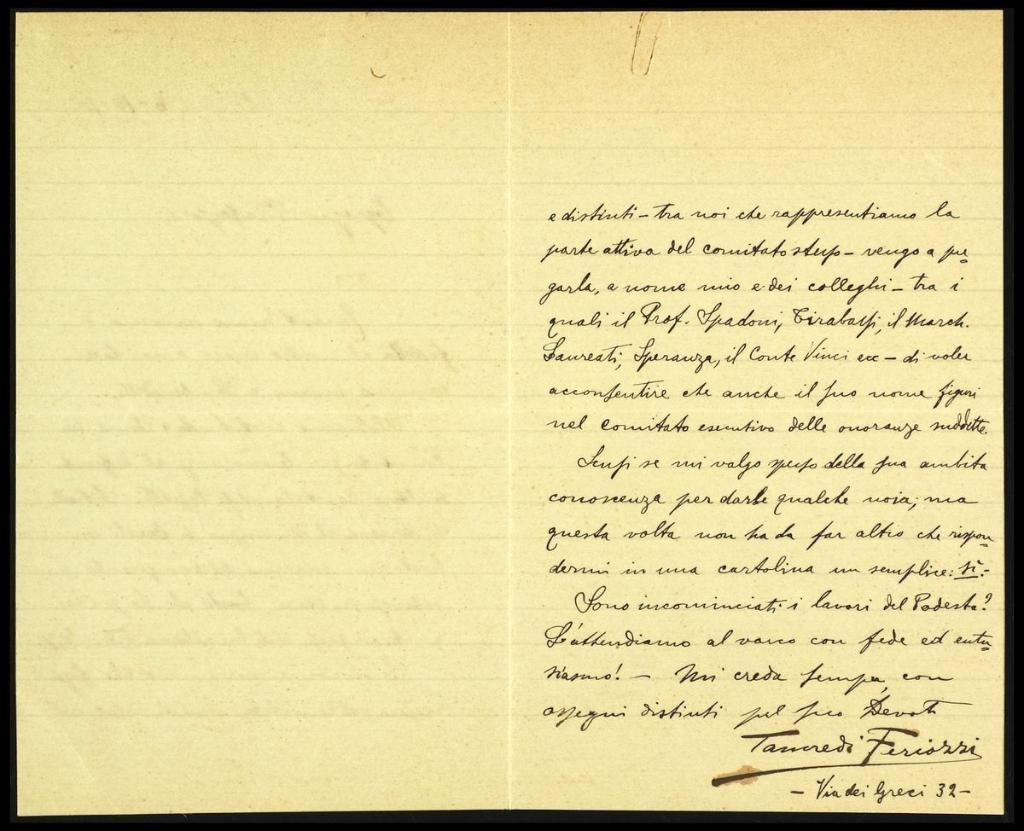 e distinti – tra noi che rappresentiamo la
parte attiva del comitato stesso – vengo a pre
garla, a nome mio e dei colleghi – tra i
quali il Prof. Spadoni, Tirabassi, il March.
Laureati, Speranza, il Conte Vinci ecc – di voler
acconsentire che anche il suo nome figuri
nel comitato esecutivo delle onoranze suddette.
Scusi se mi valgo spesso della sua ambita
conoscenza per darle qualche noia; ma
questa volta non ha da far altro che rispon
dermi in una cartolina un semplice: sì.
Sono incominciati i lavori del Podesta?
L'attendiamo al varco con fede ed entu
siasmo! – Mi creda sempre, con
ossequi distinti pel suo Devot
Tancredi Feriozzi
– Via dei Greci 32 –